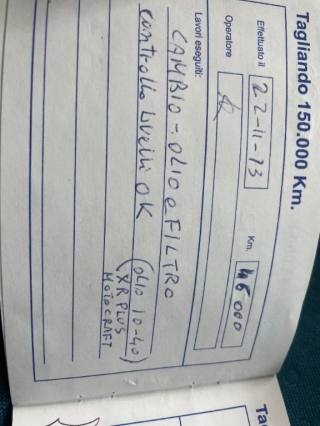 Tagliando 150.000 Km.
Effettuato il 22-11-13 Km. 46000
Operatore
Lavori eseguiti:
CAMBIO - OLIO e FILTRO
controllo livelli OK (OLIO 10-40)
(XR PLUS
MOTOCRAFT
Ta